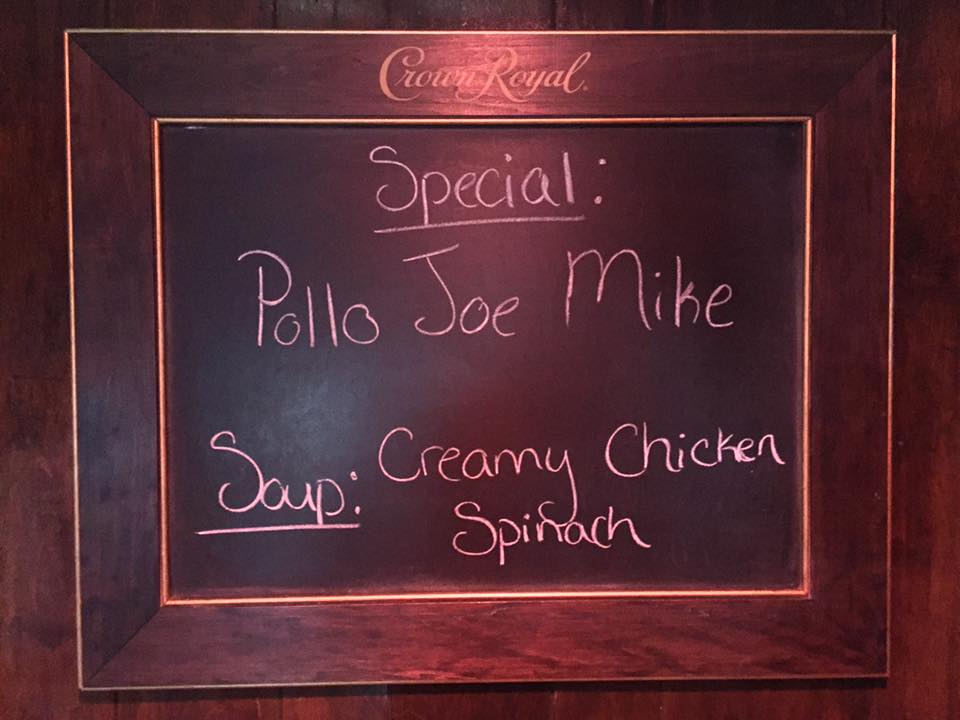 Crown Royal
Special:
Pollo Joe Mike
Soup: Creamy Chicken
Spinach